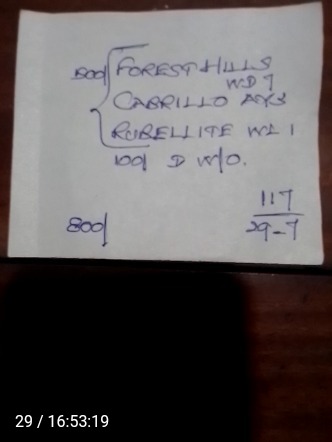 500/ FOREST HILLS
WD 7
CABRILLO AY3
RUBELLITE WL 1
100/ D W/O.
800/
117
29-7
29 / 16:53:19